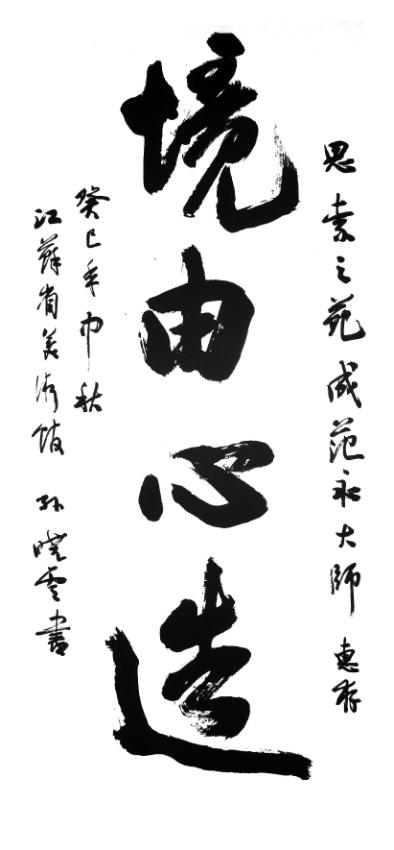 思索之苑成范永大师惠存
境由心造
癸巳年中秋
江蘇省美術館 孙晓雲書